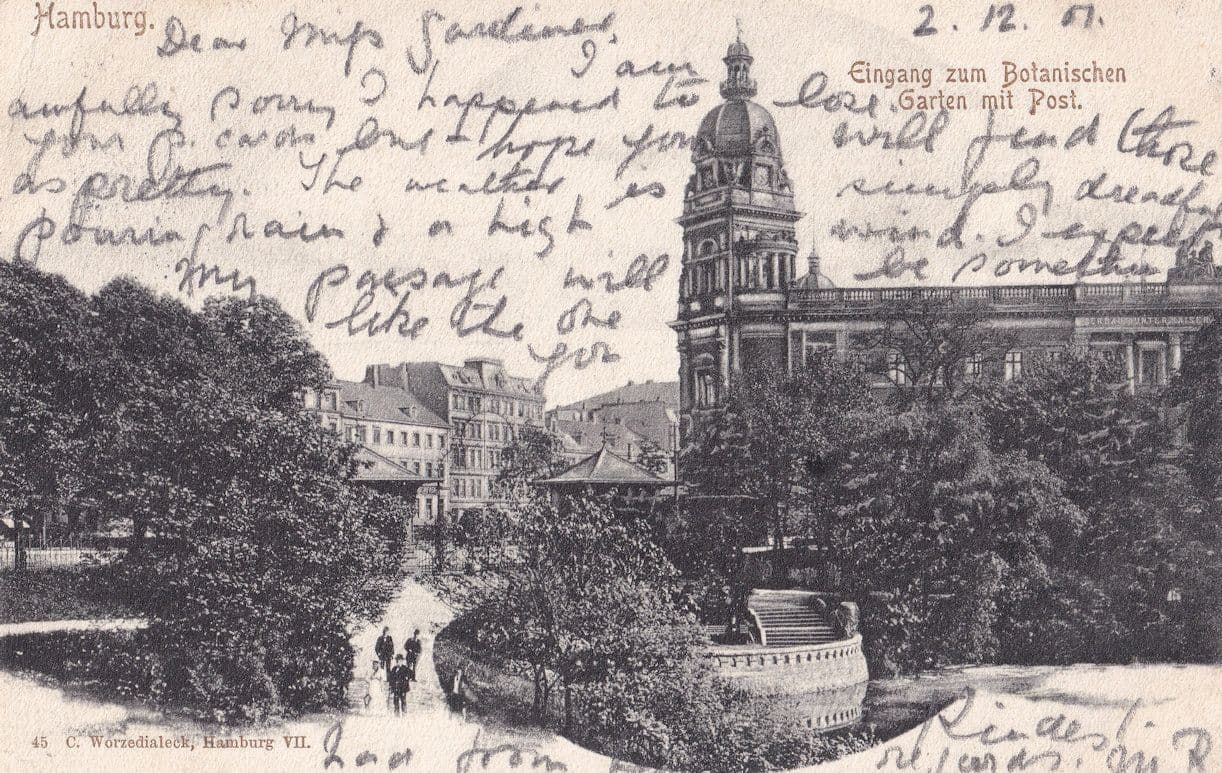 Hamburg.
2. 12. 01.
Dear Miss Gardiner,
Eingang zum Botanischen
Garten mit Post.
I am
awfully sorry I happened to lose
your p. cards but hope you will find those
as pretty. The weather is simply dreadful
pouring rain & a high wind. I expect
My passage will be something
like the one
you
had from
Kindest
regards. M R
45 C. Worzedialeck, Hamburg VII.